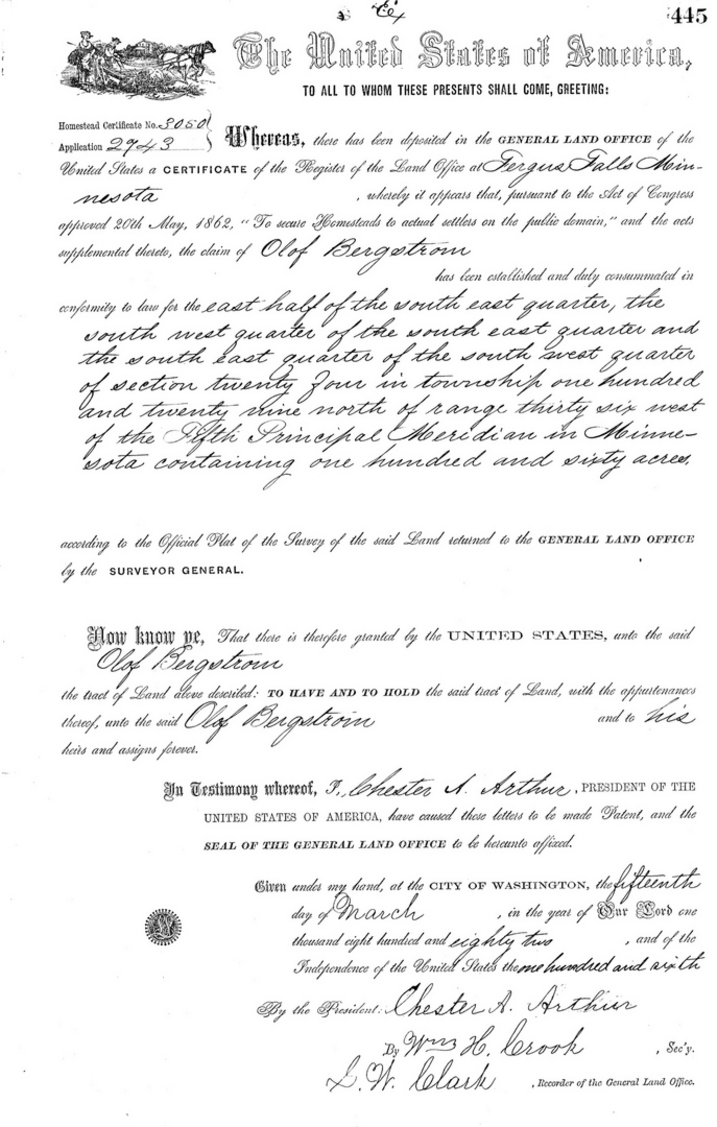 445
The United States of America,
TO ALL TO WHOM THESE PRESENTS SHALL COME, GREETING:
Homestead Certificate No. 3050
Application 2743
Whereas, there has been deposited in the GENERAL LAND OFFICE of the
United States a CERTIFICATE of the Register of the Land Office at Fergus Falls Min-
nesota , whereby it appears that, pursuant to the Act of Congress
approved 20th May, 1862, "To secure Homesteads to actual settlers on the public domain," and the acts
supplemental thereto, the claim of Olof Bergstrom
has been established and duly consummated in
conformity to law for the east half of the south east quarter, the
south west quarter of the south east quarter and
the south east quarter of the south west quarter
of section twenty four in township one hundred
and twenty nine north of range thirty six west
of the Fifth Principal Meridian in Minne-
sota containing one hundred and sixty acres.
according to the Official Plat of the Survey of the said Land returned to the GENERAL LAND OFFICE
by the SURVEYOR GENERAL.
Now know ye, That there is therefore granted by the UNITED STATES, unto the said
Olof Bergstrom
the tract of Land above described: TO HAVE AND TO HOLD the said tract of Land, with the appurtenances
thereof, unto the said Olof Bergstrom and to his
heirs and assigns forever.
In Testimony whereof, I, Chester A. Arthur, PRESIDENT OF THE
UNITED STATES OF AMERICA, have caused these letters to be made Patent, and the
SEAL OF THE GENERAL LAND OFFICE to be hereunto affixed.
Given under my hand, at the CITY OF WASHINGTON, the fifteenth
day of March , in the year of Our Lord one
thousand eight hundred and eighty two , and of the
Independence of the United States the one hundred and sixth
By the President: Chester A. Arthur
By Wm H. Crook , Sec'y.
S. W. Clark , Recorder of the General Land Office.